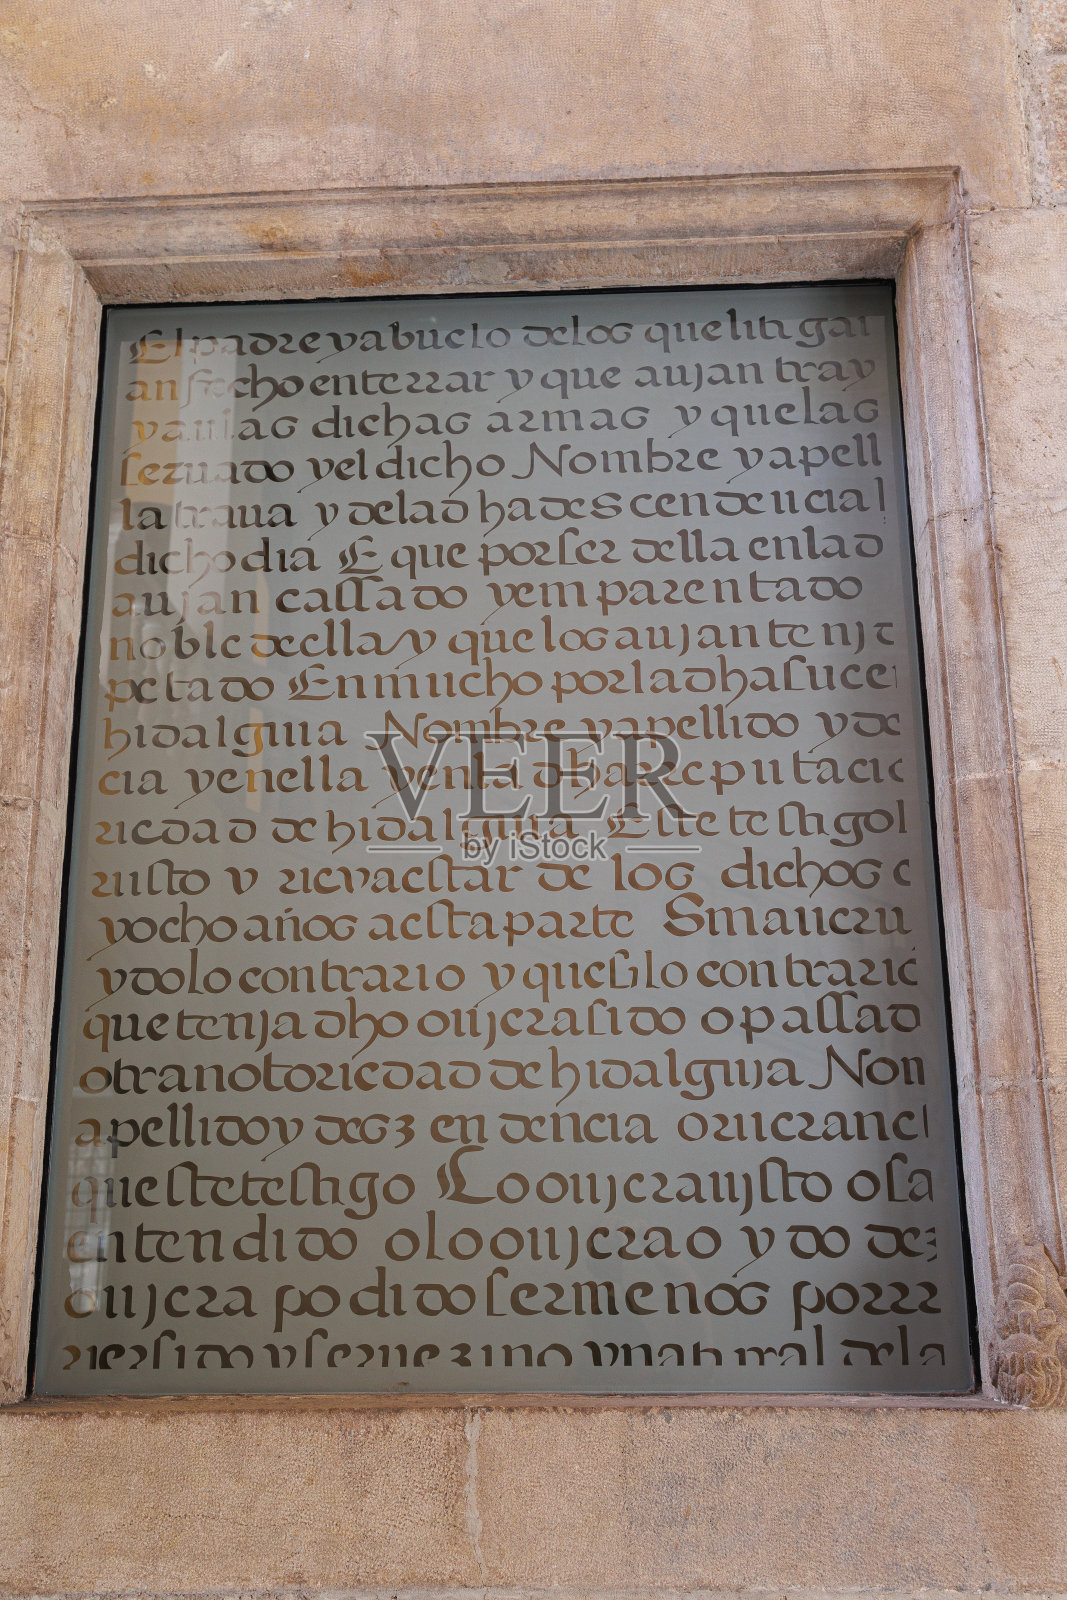 El padre y abuelo de los que liti gai
an fecho enterrar y que aujan tray
y auias dichas armas y que las
seruado y el dicho Nombre y apell
la traua y de la dha descendencia l
dicho dia E que por ser della en la d
aujan cassado y em parentado
noble de ella y que los aujan tenj e
petado En mucho por la dha suce
hidalguia Nombre y apellido y de
cia y en ella y en la dha reputacic
riedad de hidalguia Este testigo l
riisto y rieya estar de los dichos c
y ocho años a esta parte S maiicru
y do lo contrario y que si lo contraric
que tenja dho ouijera sido o passad
otra notoriedad de hidalguja Non
apellido y desz en dencia oruieranc
que este testigo Lo ouijera uijsto o sa
entendido o lo ouijera o y do dez
ouijera podido ser menos por rr
riersido y ser uezino y natural de la
VEER
by iStock